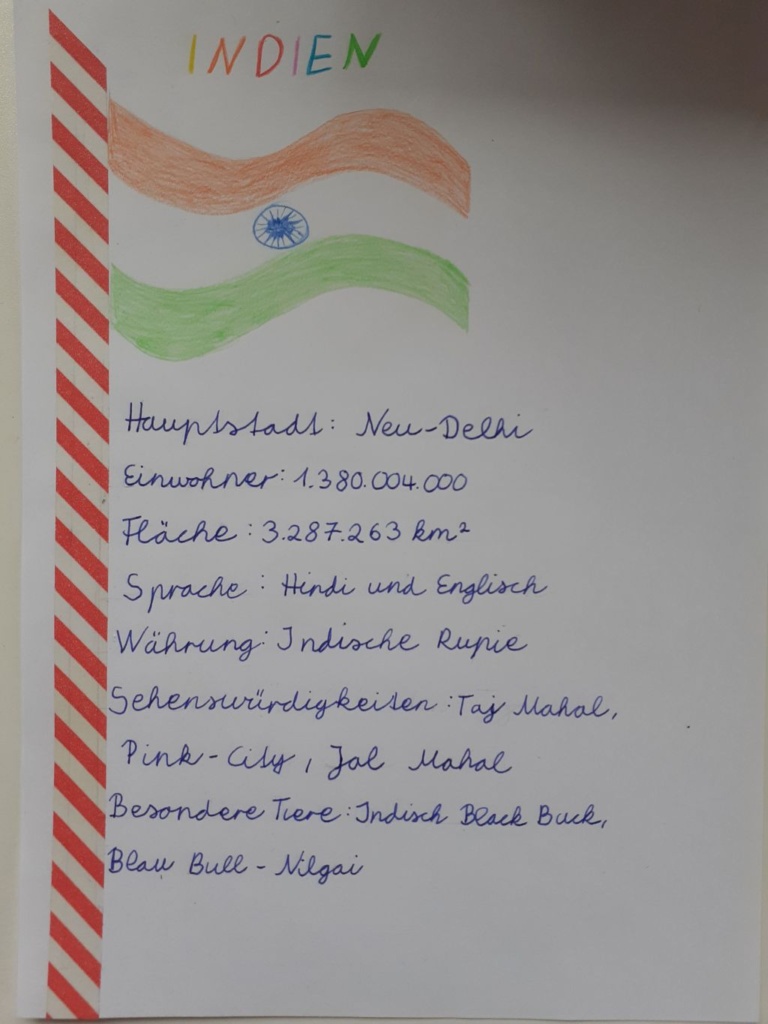 INDIEN
Hauptstadt: Neu-Delhi
Einwohner: 1.380.004.000
Fläche: 3.287.263 km²
Sprache: Hindi und Englisch
Währung: Indische Rupie
Sehenswürdigkeiten: Taj Mahal,
Pink-City, Jal Mahal
Besondere Tiere: Indisch Black Buck,
Blau Bull - Nilgai